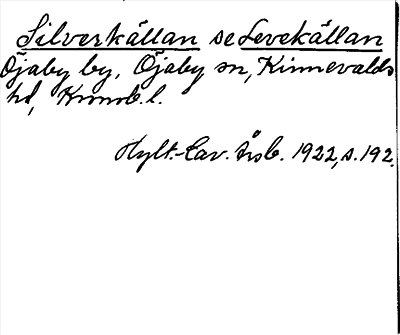 Silverkällan se Levekällan
Öjaby by, Öjaby sn, Kinnevalds
hd, Kronob. l.
Hylt.-Cav. årsb. 1922, s. 192.